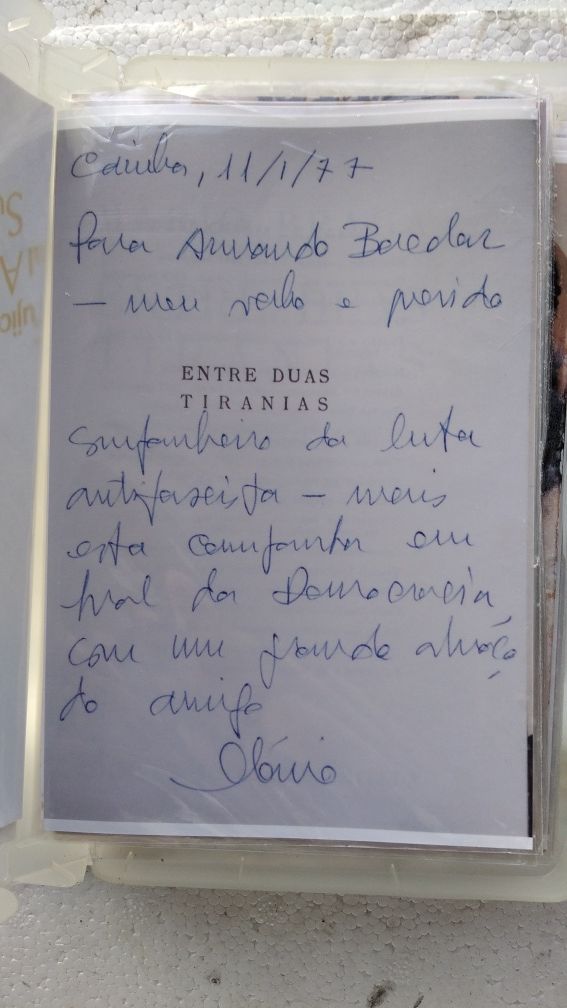 Coimbra, 11/1/77
Para Armando Bacelar
— meu velho e querido
ENTRE DUAS
TIRANIAS
companheiro da luta
antifascista — mais
esta campanha em
prol da Democracia,
com um grande abraço
do amigo